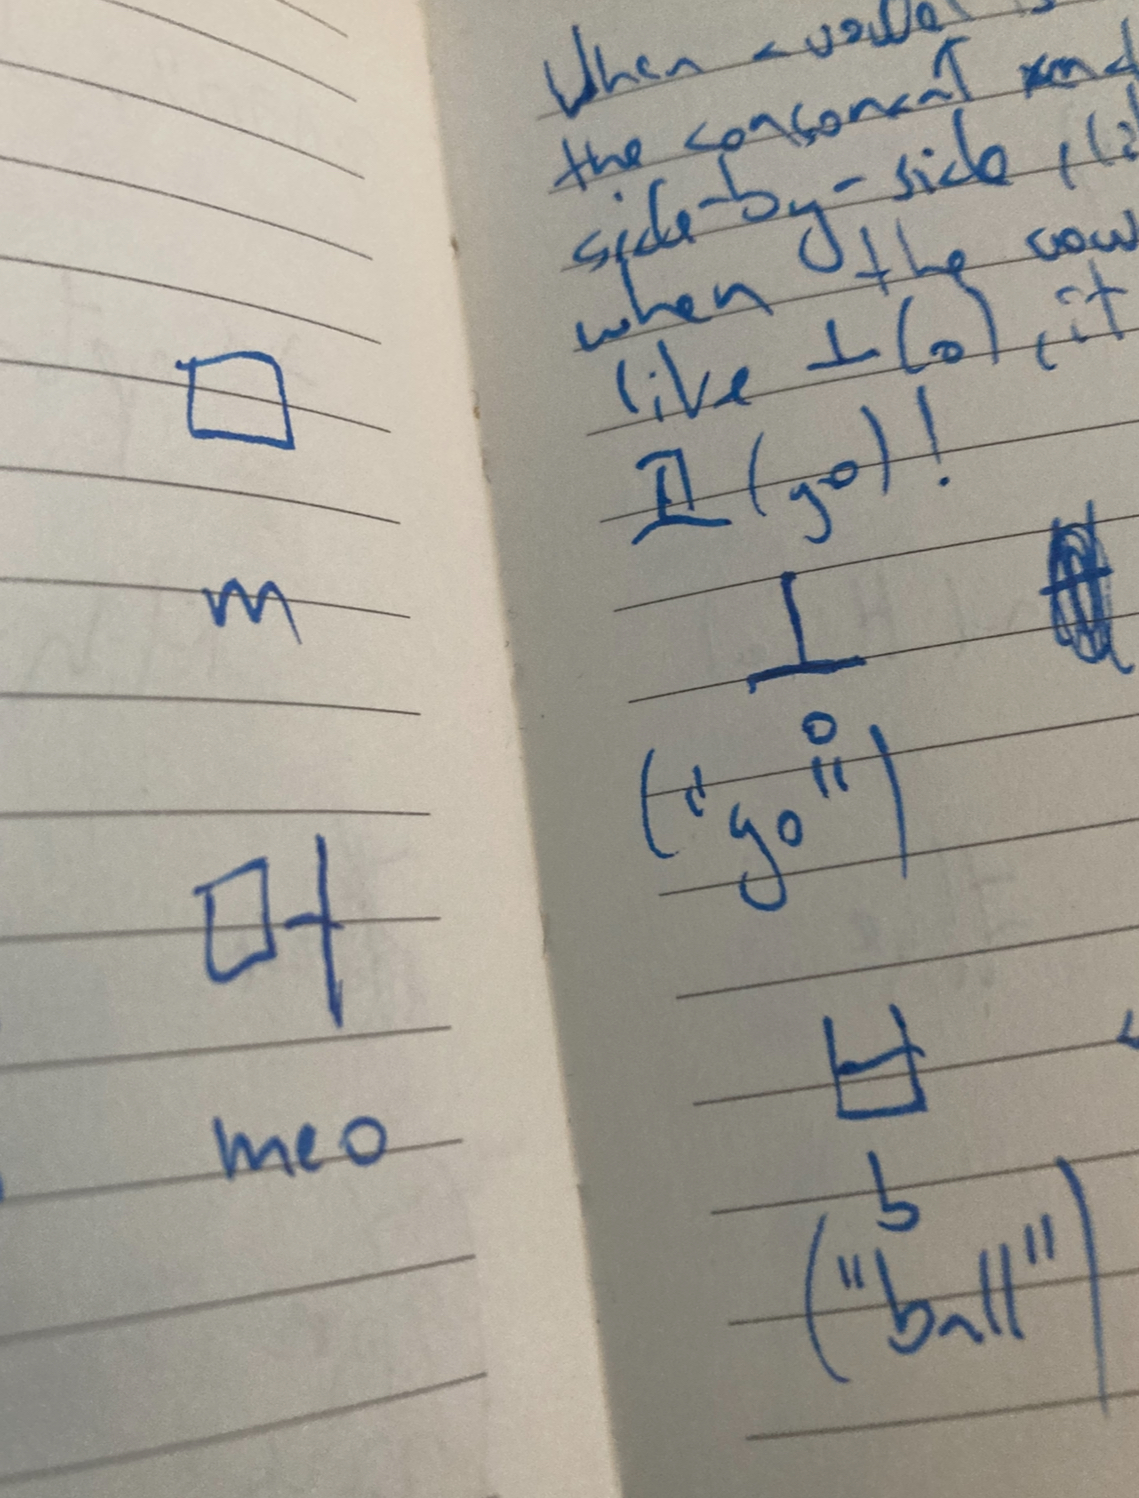 ㅁ
m
머
meo
When a
the consonant and
side-by-side,
when the
like ㅗ (o), it
고 (go)!
ㅗ
o
("go")
ㅂ
b
("ball")